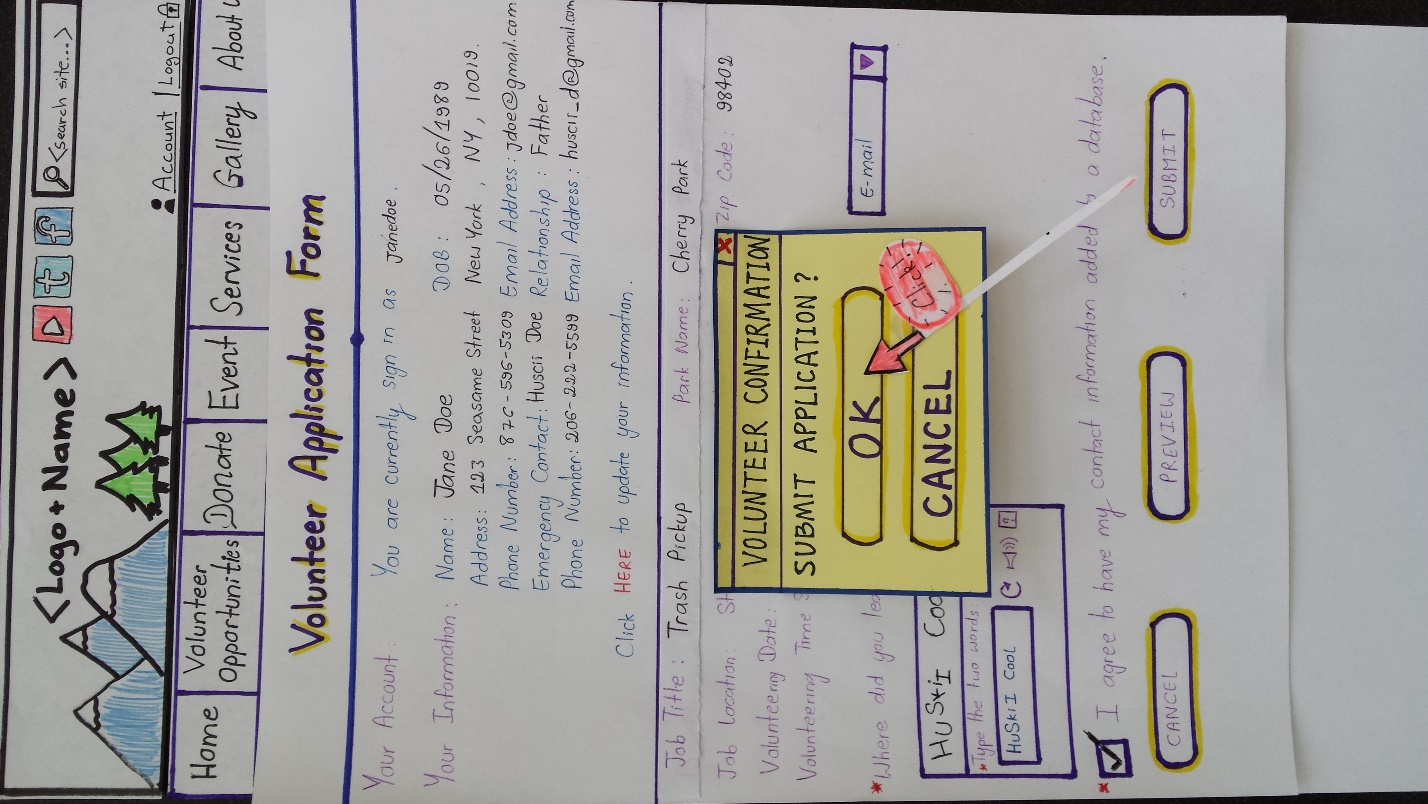 <Logo+Name>
<search site...>
Account | Logout
Home
Volunteer Opportunities
Donate
Event
Services
Gallery
About
Volunteer Application Form
Your Account: You are currently sign in as janedoe.
Your Information: Name: Jane Doe DOB: 05/26/1989
Address: 123 Seasame Street New York, NY, 10019.
Phone Number: 876-596-5309 Email Address: jdoe@gmail.com
Emergency Contact: Huscii Doe Relationship: Father
Phone Number: 206-222-5599 Email Address: huscii_d@gmail.com
Click HERE to update your information.
Job Title: Trash Pickup Park Name: Cherry Park
Job Location: St Zip Code: 98402
Volunteering Date:
Volunteering Time
*Where did you lea
E-mail
VOLUNTEER CONFIRMATION
SUBMIT APPLICATION?
OK
CANCEL
Click!
HuS*iI Coo
*Type the two words:
HuSkiI CooL
* I agree to have my contact information added a database.
CANCEL
PREVIEW
SUBMIT